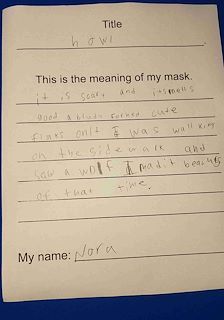 Title
howl
This is the meaning of my mask.
it is scary and it smells
good a bludy forned cute
finks onlt I was wallking
on the sidewalk and
saw a wolf I madit because
of that time.
My name: Nora